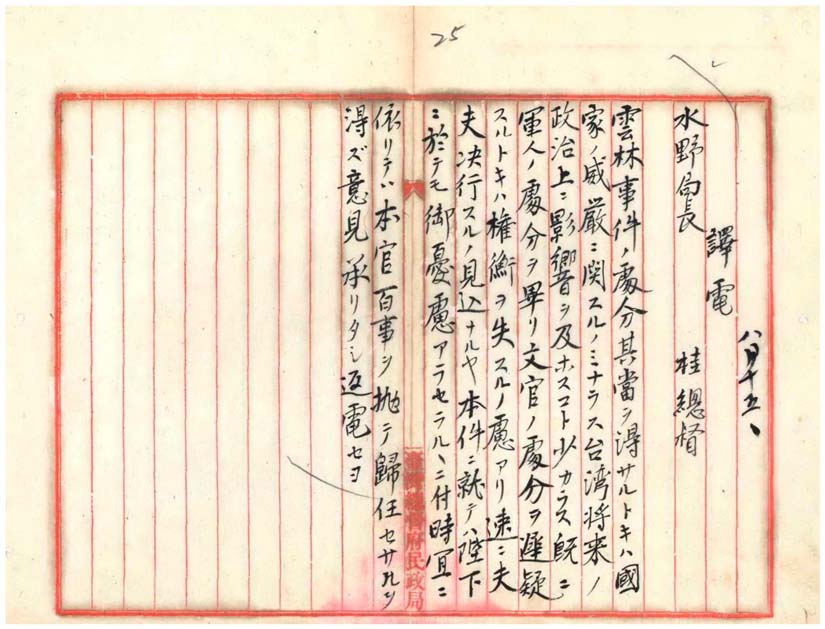 25
八月十五、
譯電
桂總督
水野局長
雲林事件ノ處分其當ヲ得サルトキハ國
家ノ威厳ニ関スルノミナラス台湾将来ノ
政治上ニ影響ヲ及ホスコト少カラス既ニ
軍人ノ處分ヲ畢リ文官ノ處分ヲ遲疑
スルトキハ権衡ヲ失スルノ慮アリ速ニ夫
夫決行スルノ見込ナルヤ本件ニ就テハ陛下
ニ於テモ御憂慮アラセラルヽニ付時宜ニ
臺灣總督府民政局
依リテハ本官百事ヲ抛テ歸任セサルヲ
得ズ意見承リタシ返電セヨ